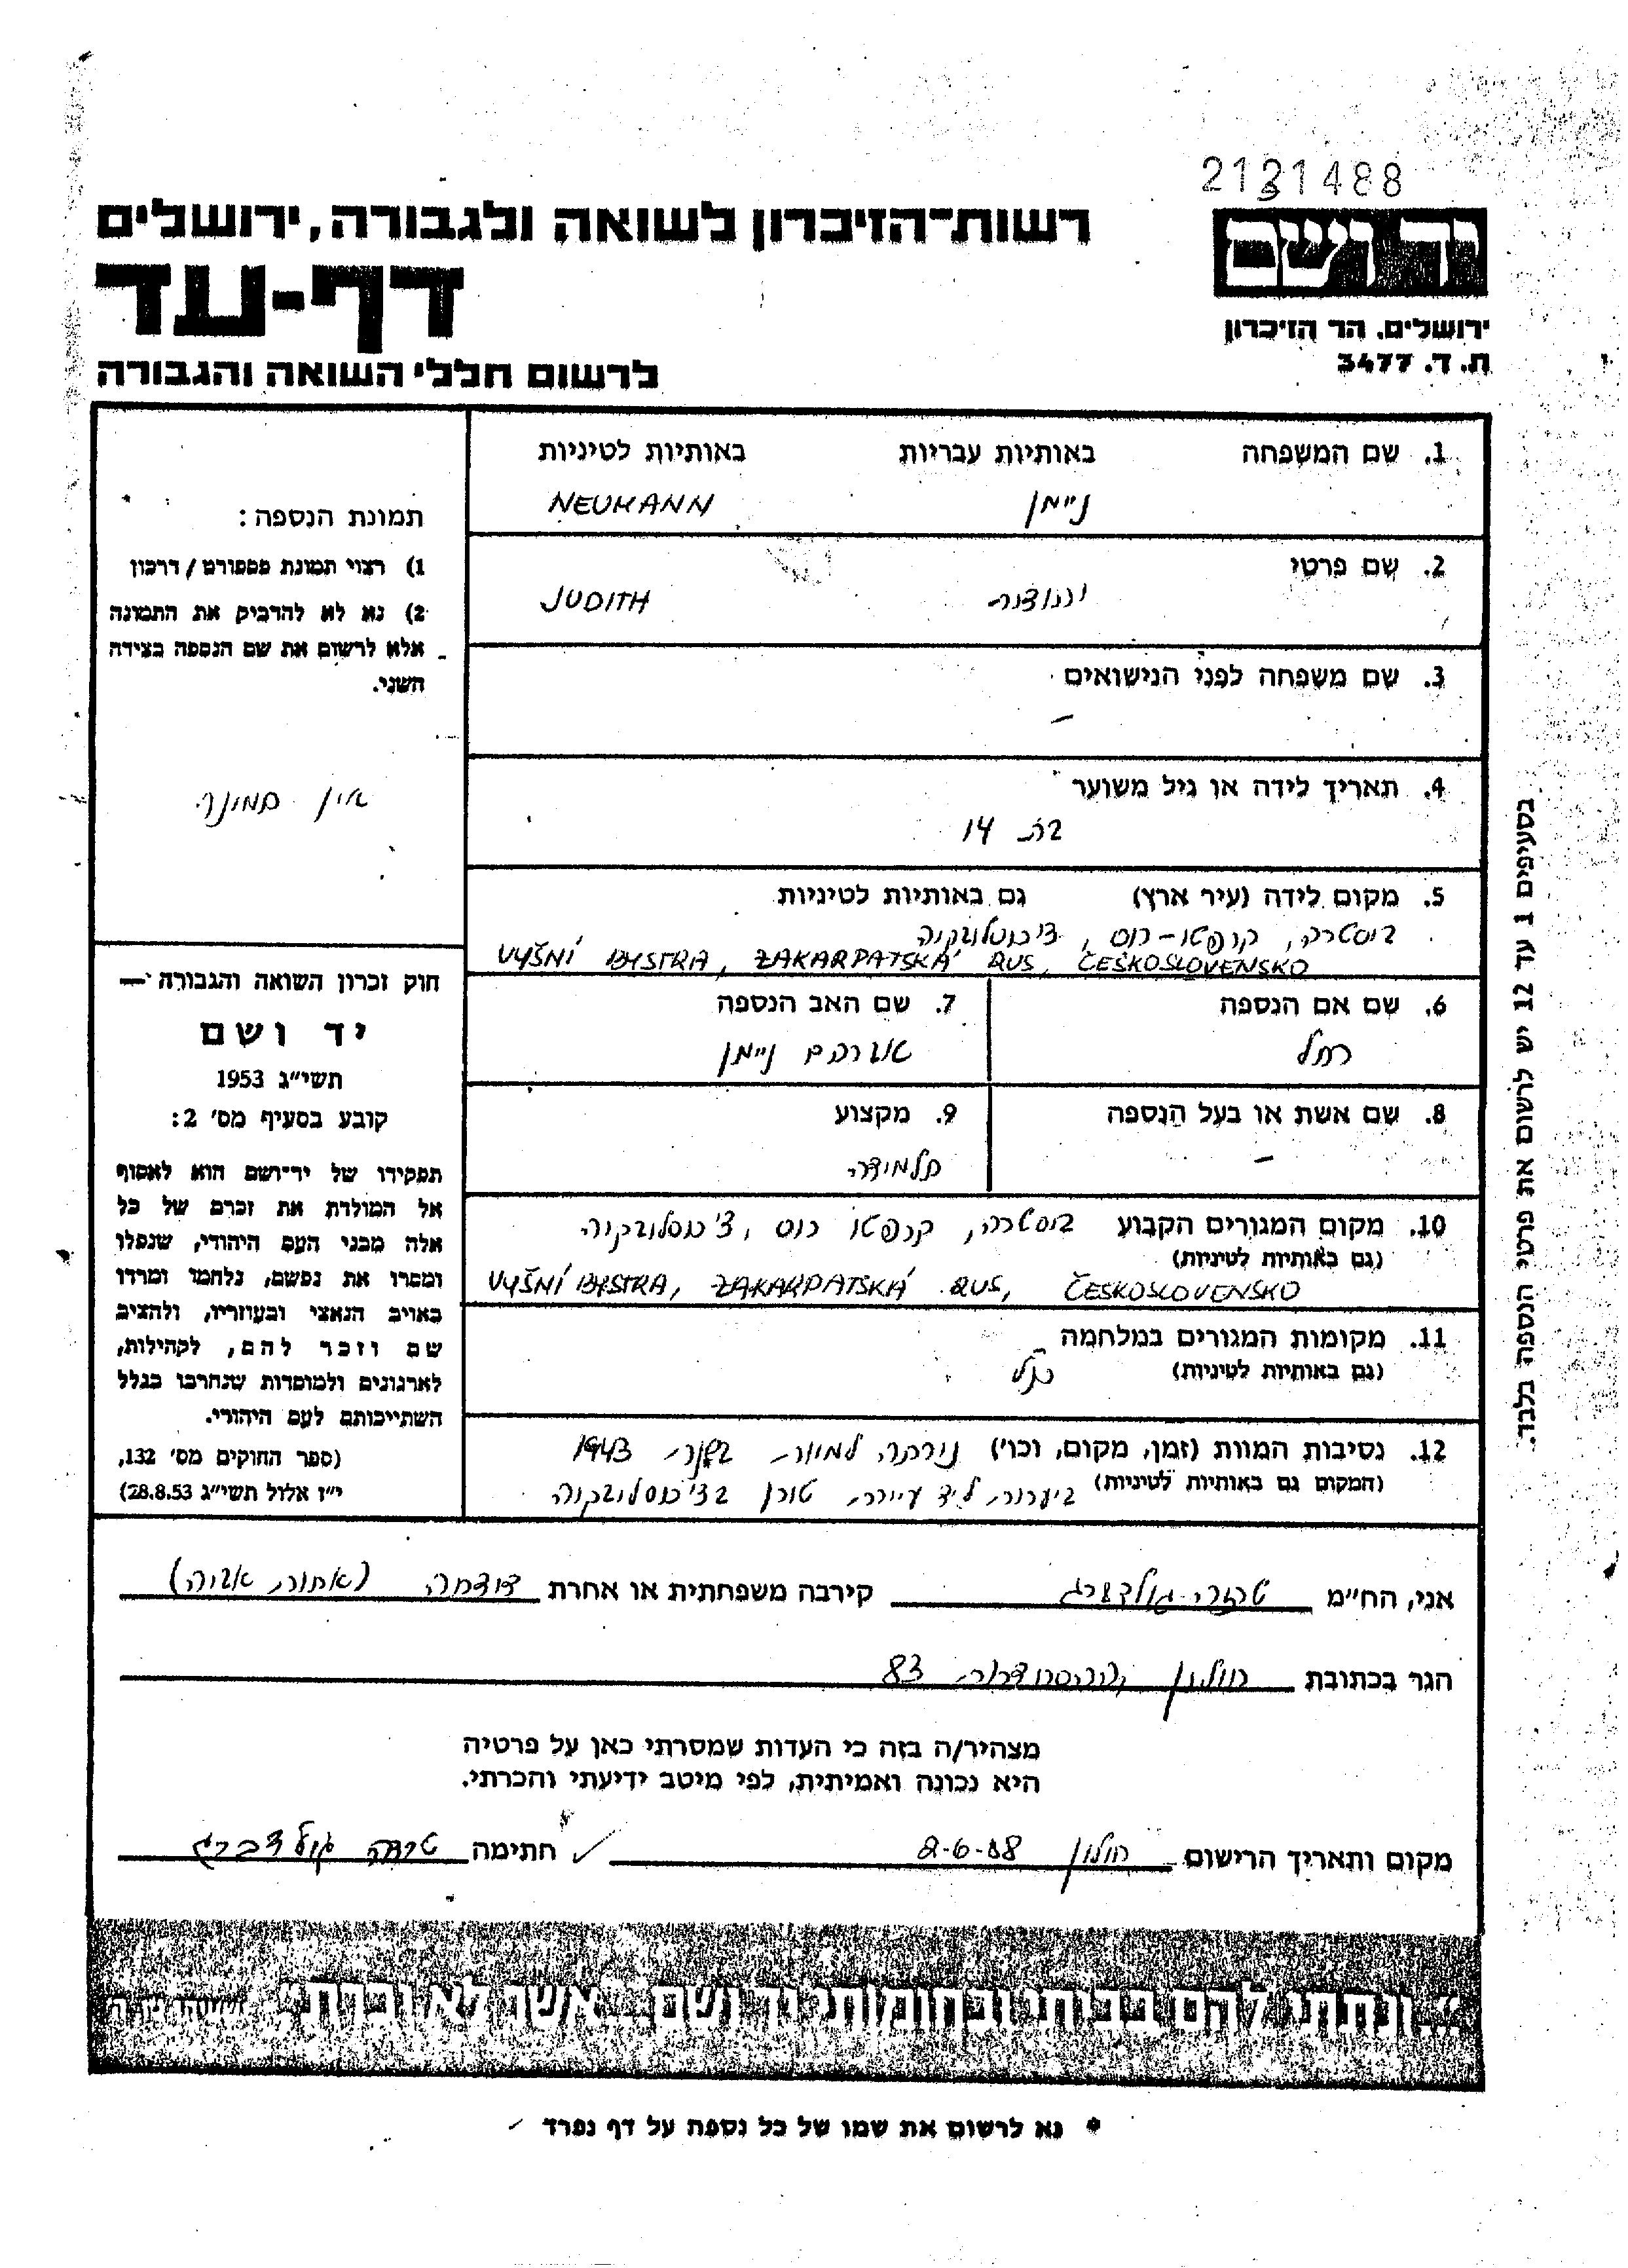 2121488
רשות־הזיכרון לשואה ולגבורה, ירושלים
דף-עד
לרשום חללי השואה והגבורה
יד ושם
ירושלים, הר הזיכרון
ת. ד. 3477
1. שם המשפחה באותיות עבריות באותיות לטיניות
ניימן NEUMANN
2. שם פרטי
יהודית JUDITH
3. שם משפחה לפני הנישואים
–
4. תאריך לידה או גיל משוער
בת 14
5. מקום לידה (עיר ארץ) גם באותיות לטיניות
ביסטרה, קרפטו-רוס, צ'כוסלובקיה
VYŠNÍ BYSTRA, ZAKARPATSKÁ RUS, ČESKOSLOVENSKO
6. שם אם הנספה
רחל
7. שם האב הנספה
אברהם ניימן
8. שם אשת או בעל הנספה
–
9. מקצוע
תלמידה
10. מקום המגורים הקבוע ביסטרה, קרפטו רוס, צ'כוסלובקיה
(גם באותיות לטיניות)
VYŠNÍ BYSTRA, ZAKARPATSKÁ RUS, ČESKOSLOVENSKO
11. מקומות המגורים במלחמה
(גם באותיות לטיניות) כנ"ל
12. נסיבות המוות (זמן, מקום, וכו') נורתה למוות בשנת 1943
(המקום גם באותיות לטיניות) ביערות ליד עיירה בצ'כוסלובקיה
תמונת הנספה:
1) רצוי תמונת פספורט / דרכון
2) נא לא להדביק את התמונה
אלא לרשום את שם הנספה בצידה
השני.
אין תמונה
חוק זכרון השואה והגבורה —
יד ושם
תשי"ג 1953
קובע בסעיף מס' 2:
תפקידו של יד־ושם הוא לאסוף
אל המולדת את זכרם של כל
אלה מבני העם היהודי, שנפלו
ומסרו את נפשם, נלחמו ומרדו
באויב הנאצי ובעוזריו, ולהציב
שם וזכר להם, לקהילות,
לארגונים ולמוסדות שנחרבו בגלל
השתייכותם לעם היהודי.
(ספר החוקים מס' 132,
י"ז אלול תשי"ג 28.8.53)
בסעיפים 1 עד 12 יש לרשום את פרטי הנספה בלבד.
אני, הח"מ גולדברג קירבה משפחתית או אחרת דודתה (אחות אביה)
הגר בכתובת חולון ההסתדרות 83
מצהיר/ה בזה כי העדות שמסרתי כאן על פרטיה
היא נכונה ואמיתית, לפי מיטב ידיעתי והכרתי.
מקום ותאריך הרישום חולון 2-6-88 חתימה גולדברג
"...ונתתי להם בביתי ובחומותי יד ושם... אשר לא יכרת" ישעיהו נו, ה
* נא לרשום את שמו של כל נספה על דף נפרד